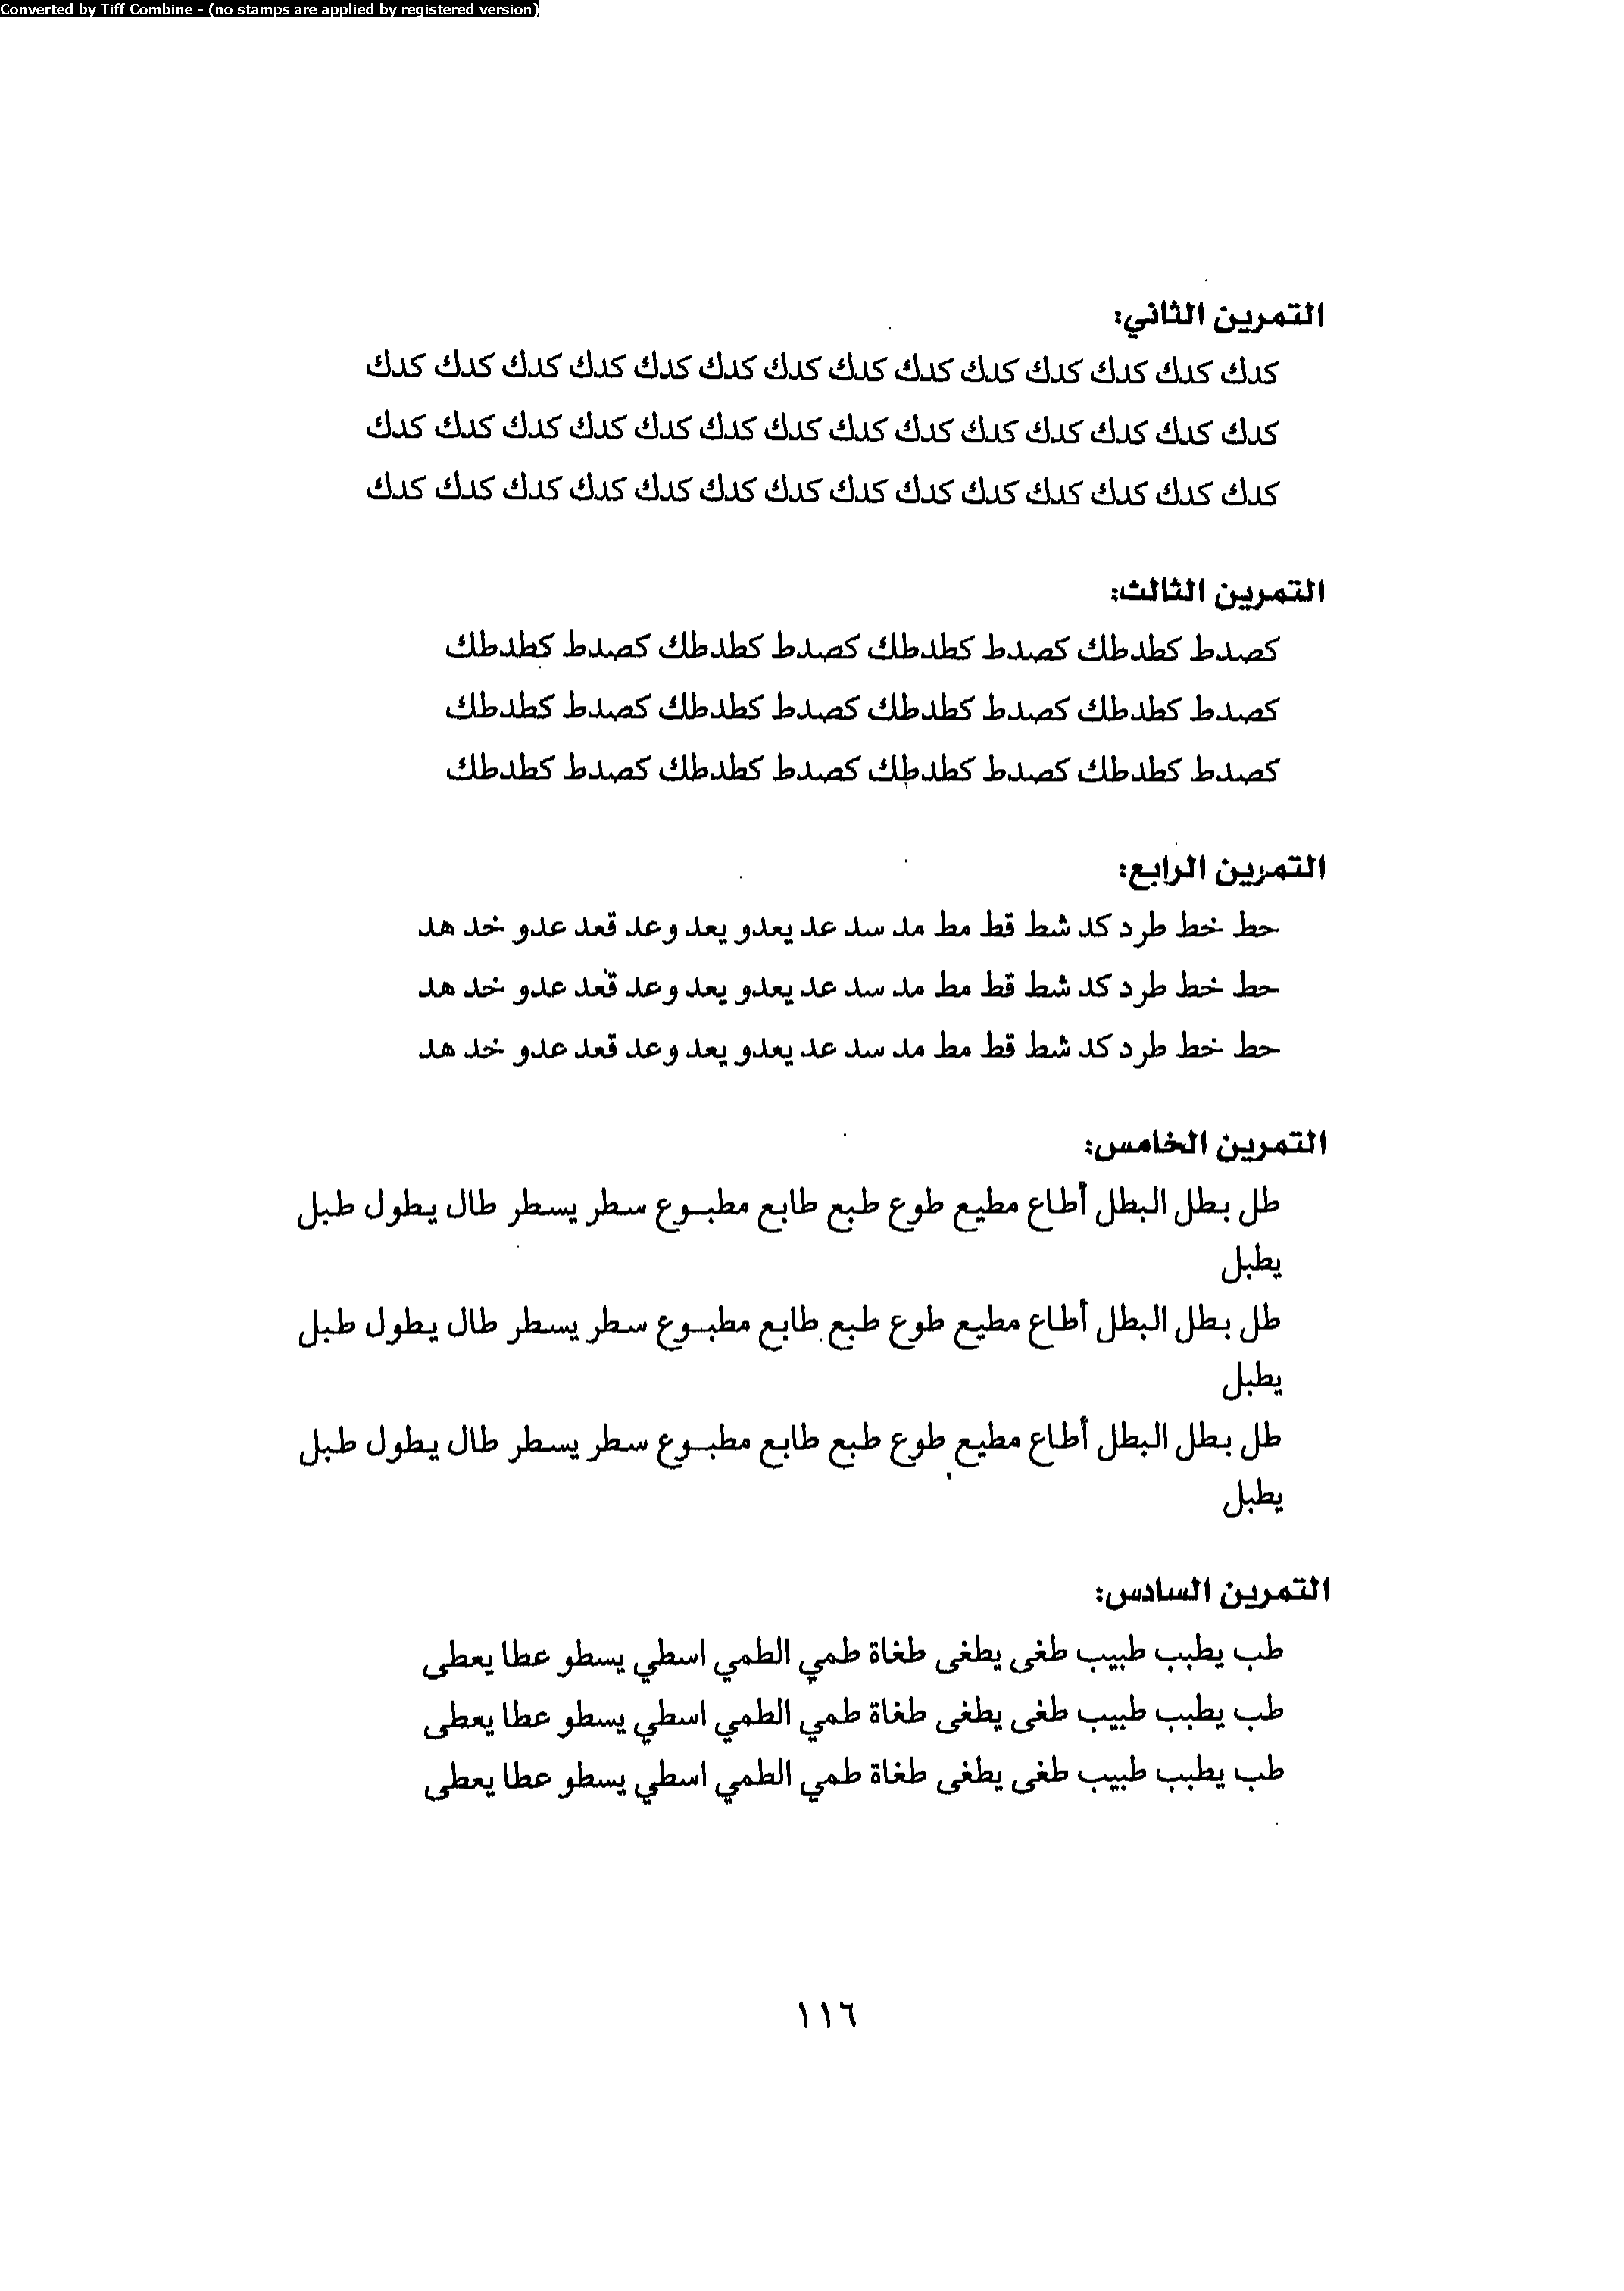 Converted by Tiff Combine - (no stamps are applied by registered version)
التمرين الثاني:
كدك كدك كدك كدك كدك كدك كدك كدك كدك كدك كدك كدك كدك كدك
كدك كدك كدك كدك كدك كدك كدك كدك كدك كدك كدك كدك كدك كدك
كدك كدك كدك كدك كدك كدك كدك كدك كدك كدك كدك كدك كدك كدك
التمرين الثالث:
كصدط كطدطك كصدط كطدطك كصدط كطدطك كصدط كطدطك
كصدط كطدطك كصدط كطدطك كصدط كطدطك كصدط كطدطك
كصدط كطدطك كصدط كطدطك كصدط كطدطك كصدط كطدطك
التمرين الرابع:
حط خط طرد كد شط قط مط مد سد عد يعدو يعد وعد قعد عدو خد هد
حط خط طرد كد شط قط مط مد سد عد يعدو يعد وعد قعد عدو خد هد
حط خط طرد كد شط قط مط مد سد عد يعدو يعد وعد قعد عدو خد هد
التمرين الخامس:
طل بطل البطل أطاع مطيع طوع طبع طابع مطبـوع سطر يسطر طال يطول طبل
يطبل
طل بطل البطل أطاع مطيع طوع طبع طابع مطبـوع سطر يسطر طال يطول طبل
يطبل
طل بطل البطل أطاع مطيع طوع طبع طابع مطبـوع سطر يسطر طال يطول طبل
يطبل
التمرين السادس:
طب يطبب طبيب طغى يطغى طغاة طمي الطمي اسطي يسطو عطا يعطى
طب يطبب طبيب طغى يطغى طغاة طمي الطمي اسطي يسطو عطا يعطى
طب يطبب طبيب طغى يطغى طغاة طمي الطمي اسطي يسطو عطا يعطى
١١٦